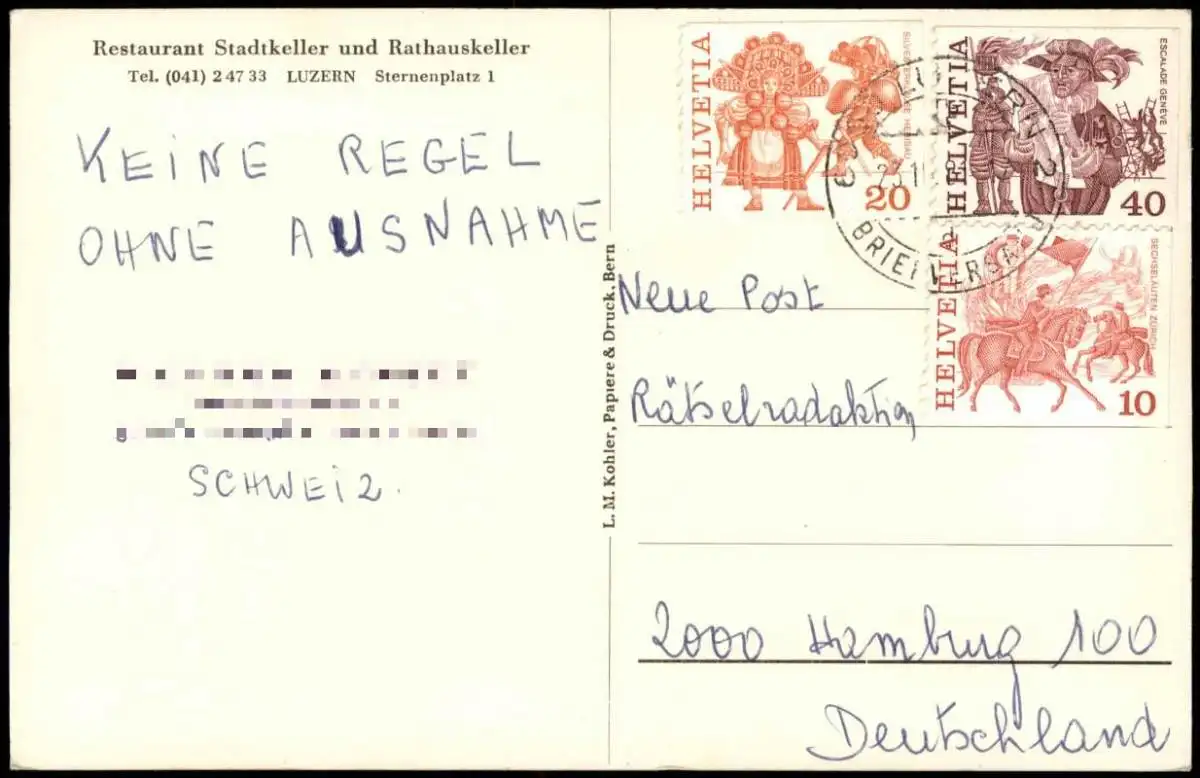 Restaurant Stadtkeller und Rathauskeller
Tel. (041) 2 47 33 LUZERN Sternenplatz 1
KEINE REGEL
OHNE AUSNAHME
SCHWEIZ.
L. M. Kohler, Papiere & Druck, Bern
HELVETIA
20
HELVETIA
ESCALADE GENÈVE
40
HELVETIA
SECHSELÄUTEN ZÜRICH
10
LUZERN 2
BRIEFVERSAND
Neue Post
Rätselradaktion
2000 Hamburg 100
Deutschland